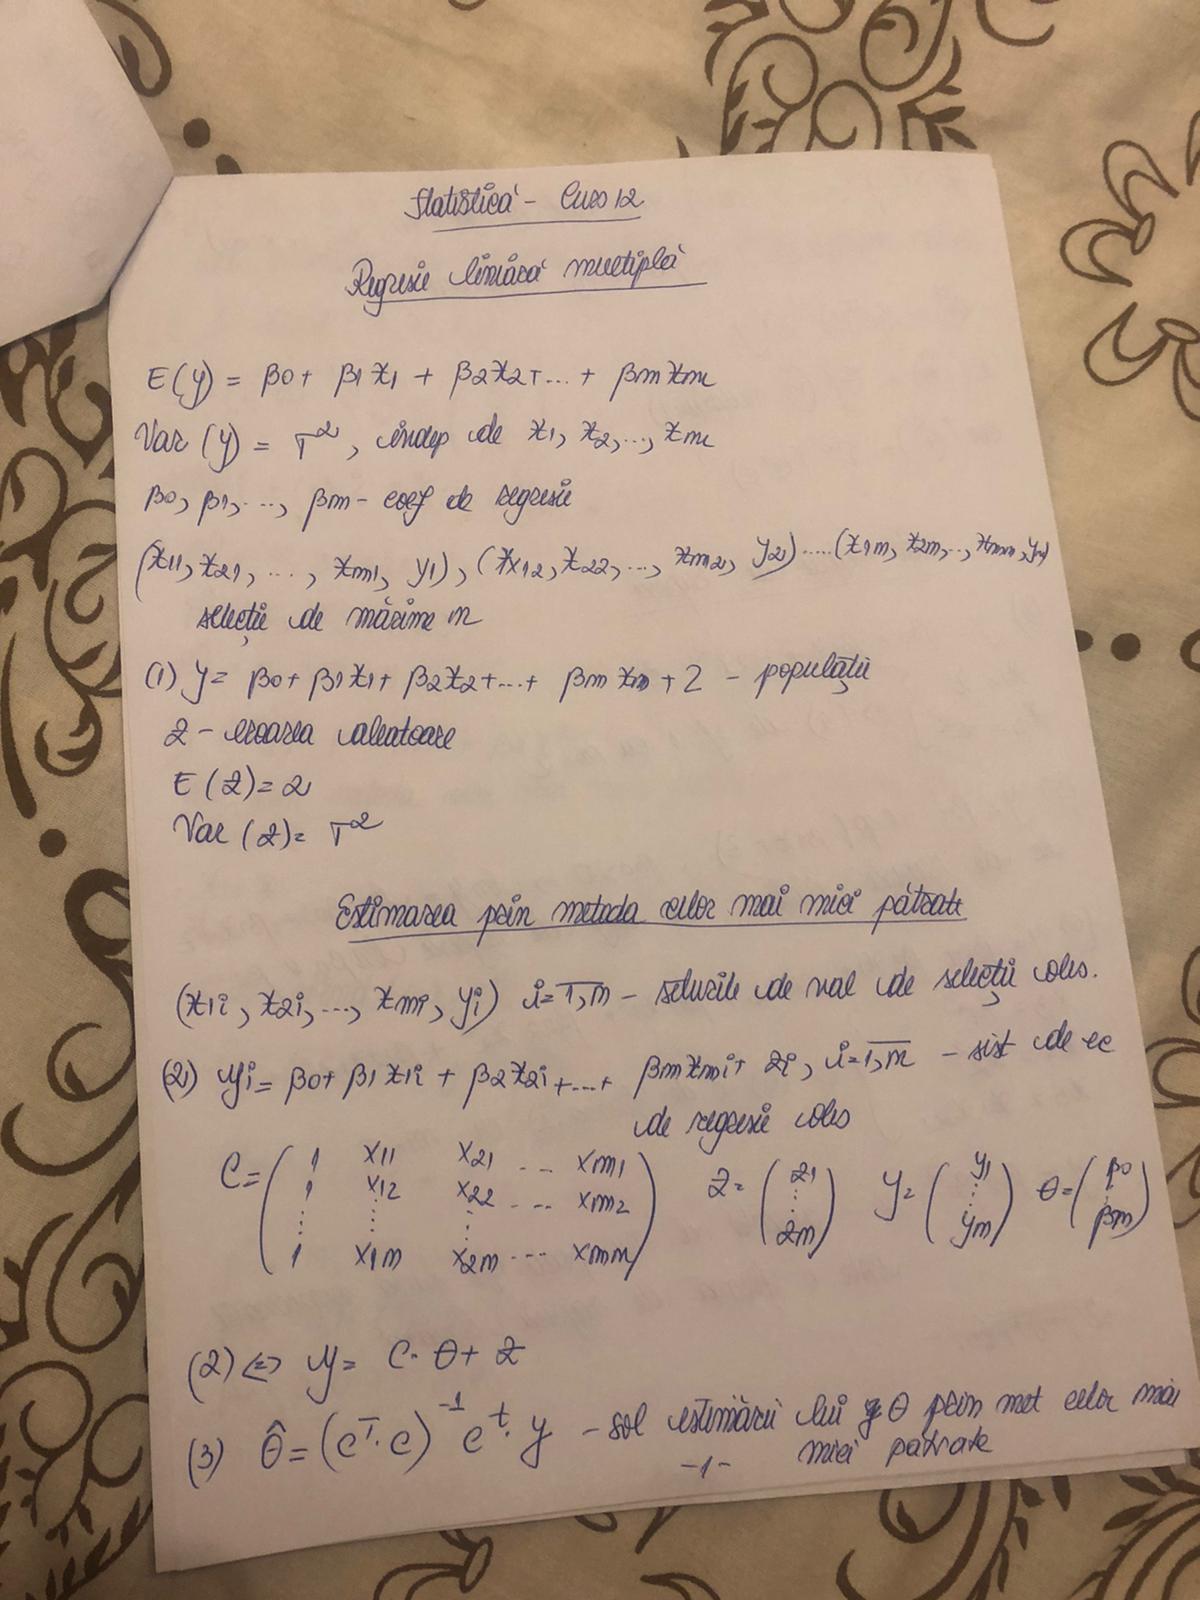 Statistică - Curs 12
Regresie liniară multiplă
E(y) = β0 + β1 x1 + β2 x2 + ... + βm xm
Var (y) = σ², indep de x1, x2, ..., xm
β0, β1, ..., βm - coef de regresie
(x11, x21, ..., xm1, y1), (x12, x22, ..., xm2, y2) ..... (x1n, x2n, ..., xmn, yn)
selecție de mărime n
(1) y = β0 + β1 x1 + β2 x2 + ... + βm xm + Z - populație
Z - eroarea aleatoare
E (Z) = 2
Var (Z) = σ²
Estimarea prin metoda celor mai mici pătrate
(x1i, x2i, ..., xmi, yi) i = 1,n - seturile de val de selecție coresp.
(2) yi = β0 + β1 x1i + β2 x2i + ... + βm xmi + Zi, i = 1,n - sist de ec
de regresie cores
C = ( 1 x11 x21 ... xm1
1 x12 x22 ... xm2
⋮ ⋮ ⋮
1 x1n x2n ... xmn ) Z = ( Z1 ⋮ Zn ) y = ( y1 ⋮ yn ) θ = ( β0 ⋮ βm )
(2) ⇔ y = C · θ + Z
(3) θ̂ = (Cᵀ · C)⁻¹ Cᵗ · y - sol estimării lui θ prin met celor mai
mici pătrate
-1-